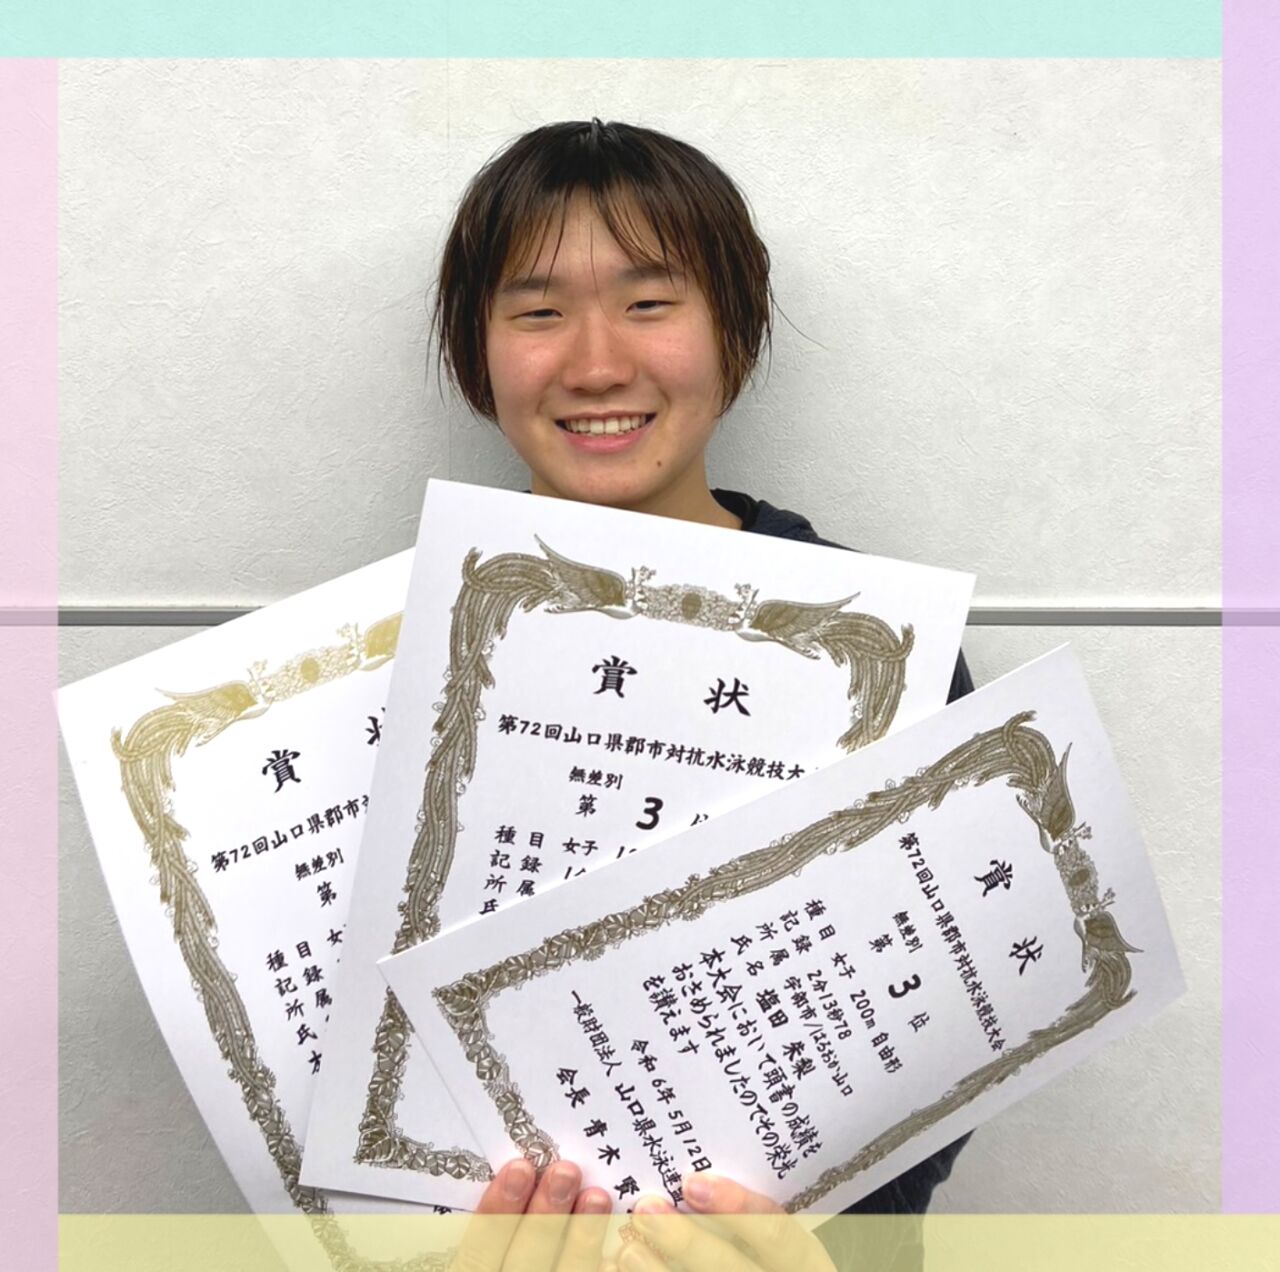 賞
第72回山口県郡市
無差別
第
種目 女
記録
所属
氏
賞状
第72回山口県郡市対抗水泳競技大
無差別
第 3 位
種目 女子
記録
所属
氏
賞状
第72回山口県郡市対抗水泳競技大会
無差別
第 3 位
種目 女子 200m 自由形
記録 2分13秒78
所属 宇部市/はらおか山口
氏名 塩田 朱梨
本大会において頭書の成績を
おさめられましたのでその栄光
を讃えます
令和 6年 5月12日
一般財団法人 山口県水泳連盟
会長 青木 賢